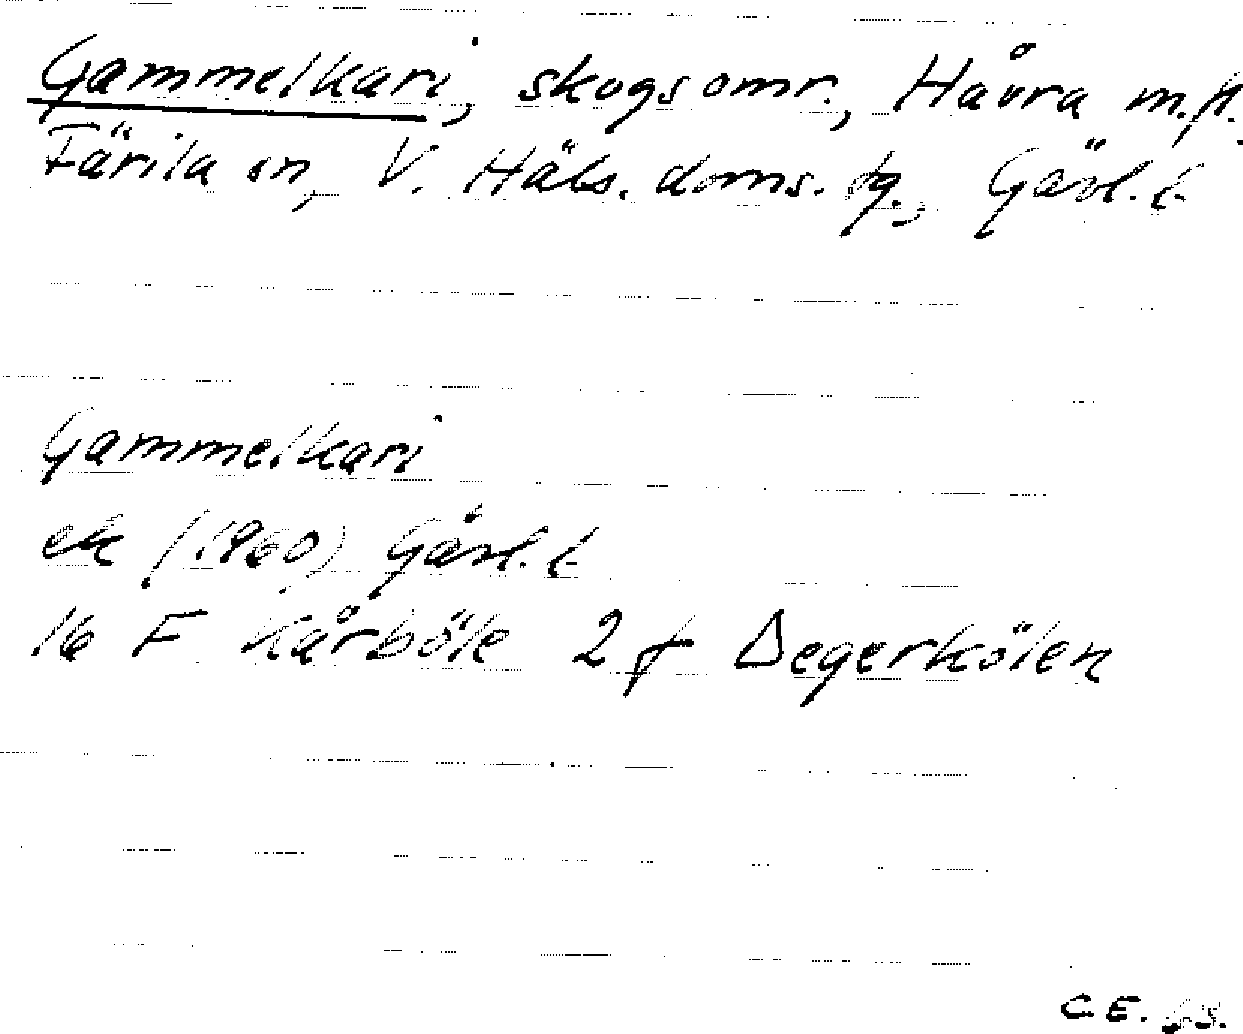 Gammelkari, skogsomr., Håvra m.fl.
Färila sn, V. Häls. doms. tg., Gävl. l.
Gammelkari
ek (1960) Gävl. l.
16 F Kårböle 2 f Degerkölen
C.E.